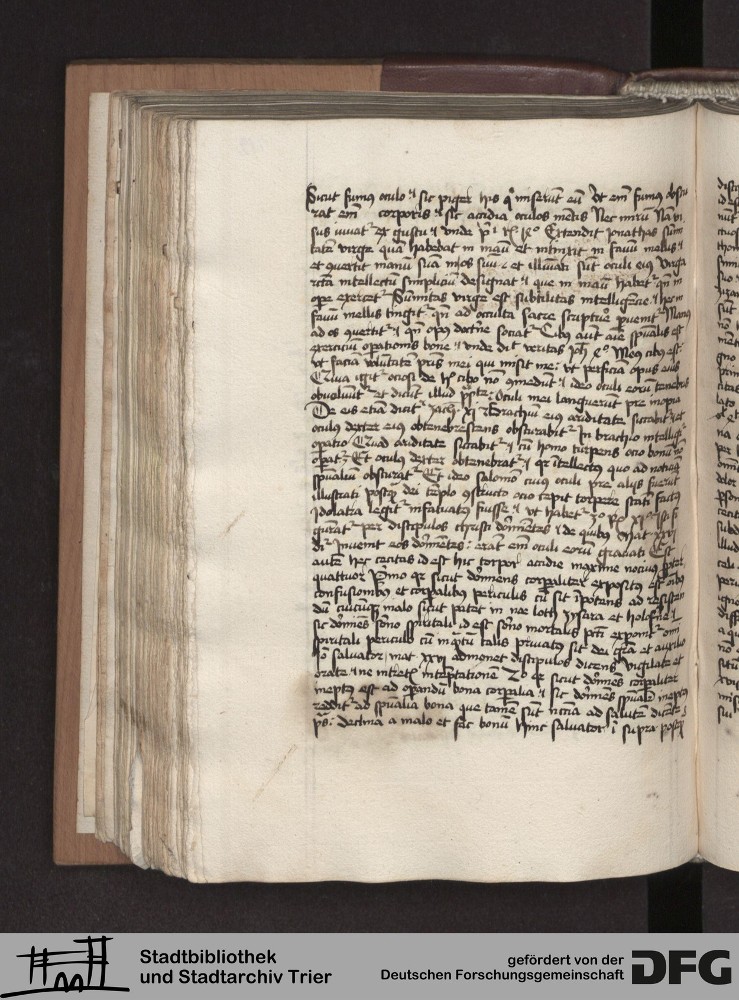 Sicut fumus oculo sic piger his qui miserunt eum Ut enim fumus obscu
rat corporis sic accidia oculos mentis Nec mirum Nam vi
sus iuvatur ex gustu unde Extendit Jonathas summi
tatem virge quam habebat in manu et intinxit in favum mellis
et convertit manum suam in os suum et illuminati sunt oculi eius Virga
recta intellectum simplicium designat que in manu habetur quando in
opere exercetur Summitas virge est subtilitas intelligencie hec in
favum mellis tingitur quando ad occulta sacre scripture pervenit Manus
ad os convertitur quando opus doctrine sociatur Cibus autem anime spiritualis est
exercicium operationis bone unde dicit veritas Joh Meus cibus est
ut faciam voluntatem patris mei qui misit me ut perficiam opus eius
Quia igitur ociosi de hoc cibo non comedunt ideo oculi eorum tenebris
obvolvuntur et dicunt illud psalmiste Oculi mei languerunt pre inopia
De eis etiam dicitur zach XI Brachium eius ariditate siccabitur et
oculus dexter eius obtenebrescens obscurabitur In brachio intelligitur
operatio Quod ariditate siccabitur cum homo torpens ocio bonum non
operatur Et oculus dexter obtenebratur quia intellectus quo ad noticiam
spiritualium obscuratur Et ideo salomon cuius oculi pre aliis fuerunt
illustrati postquam dei templo constructo ocio cepit torpere statim factus
idolatra legitur infatuatus fuisse ut habetur XI
per discipulos christi dormientes de quibus Mat XXVI
dicitur Invenit eos dormientes erant enim oculi eorum gravati Est
autem hec cecitas id est hic torpor accidie maxime nocivus propter
quattuor Primo quia sicut dormiens corporaliter expositus est
confusionibus et corporalibus periculis cum sit impotens ad resisten
dum cuicumque malo sicut patet in noe loth zysara et holoferne
sic dormiens sompno spirituali id est sompno mortalis peccati exponitur omni
spirituali periculo cum talis privatus sit dei gratia et auxilio
Ideo salvator mat XXVI admonet discipulos dicens vigilate et
orate ne intretis in temptationem 2o quia sicut dormiens corporaliter
ineptus est ad operandum bona corporalia sic dormiens spiritualiter ineptus
redditur ad spiritualia bona que tamen sunt necessaria ad salutem dicente
ps declina a malo et fac bonum hinc salvator supra

Stadtbibliothek
und Stadtarchiv Trier
gefördert von der
Deutschen Forschungsgemeinschaft
DFG